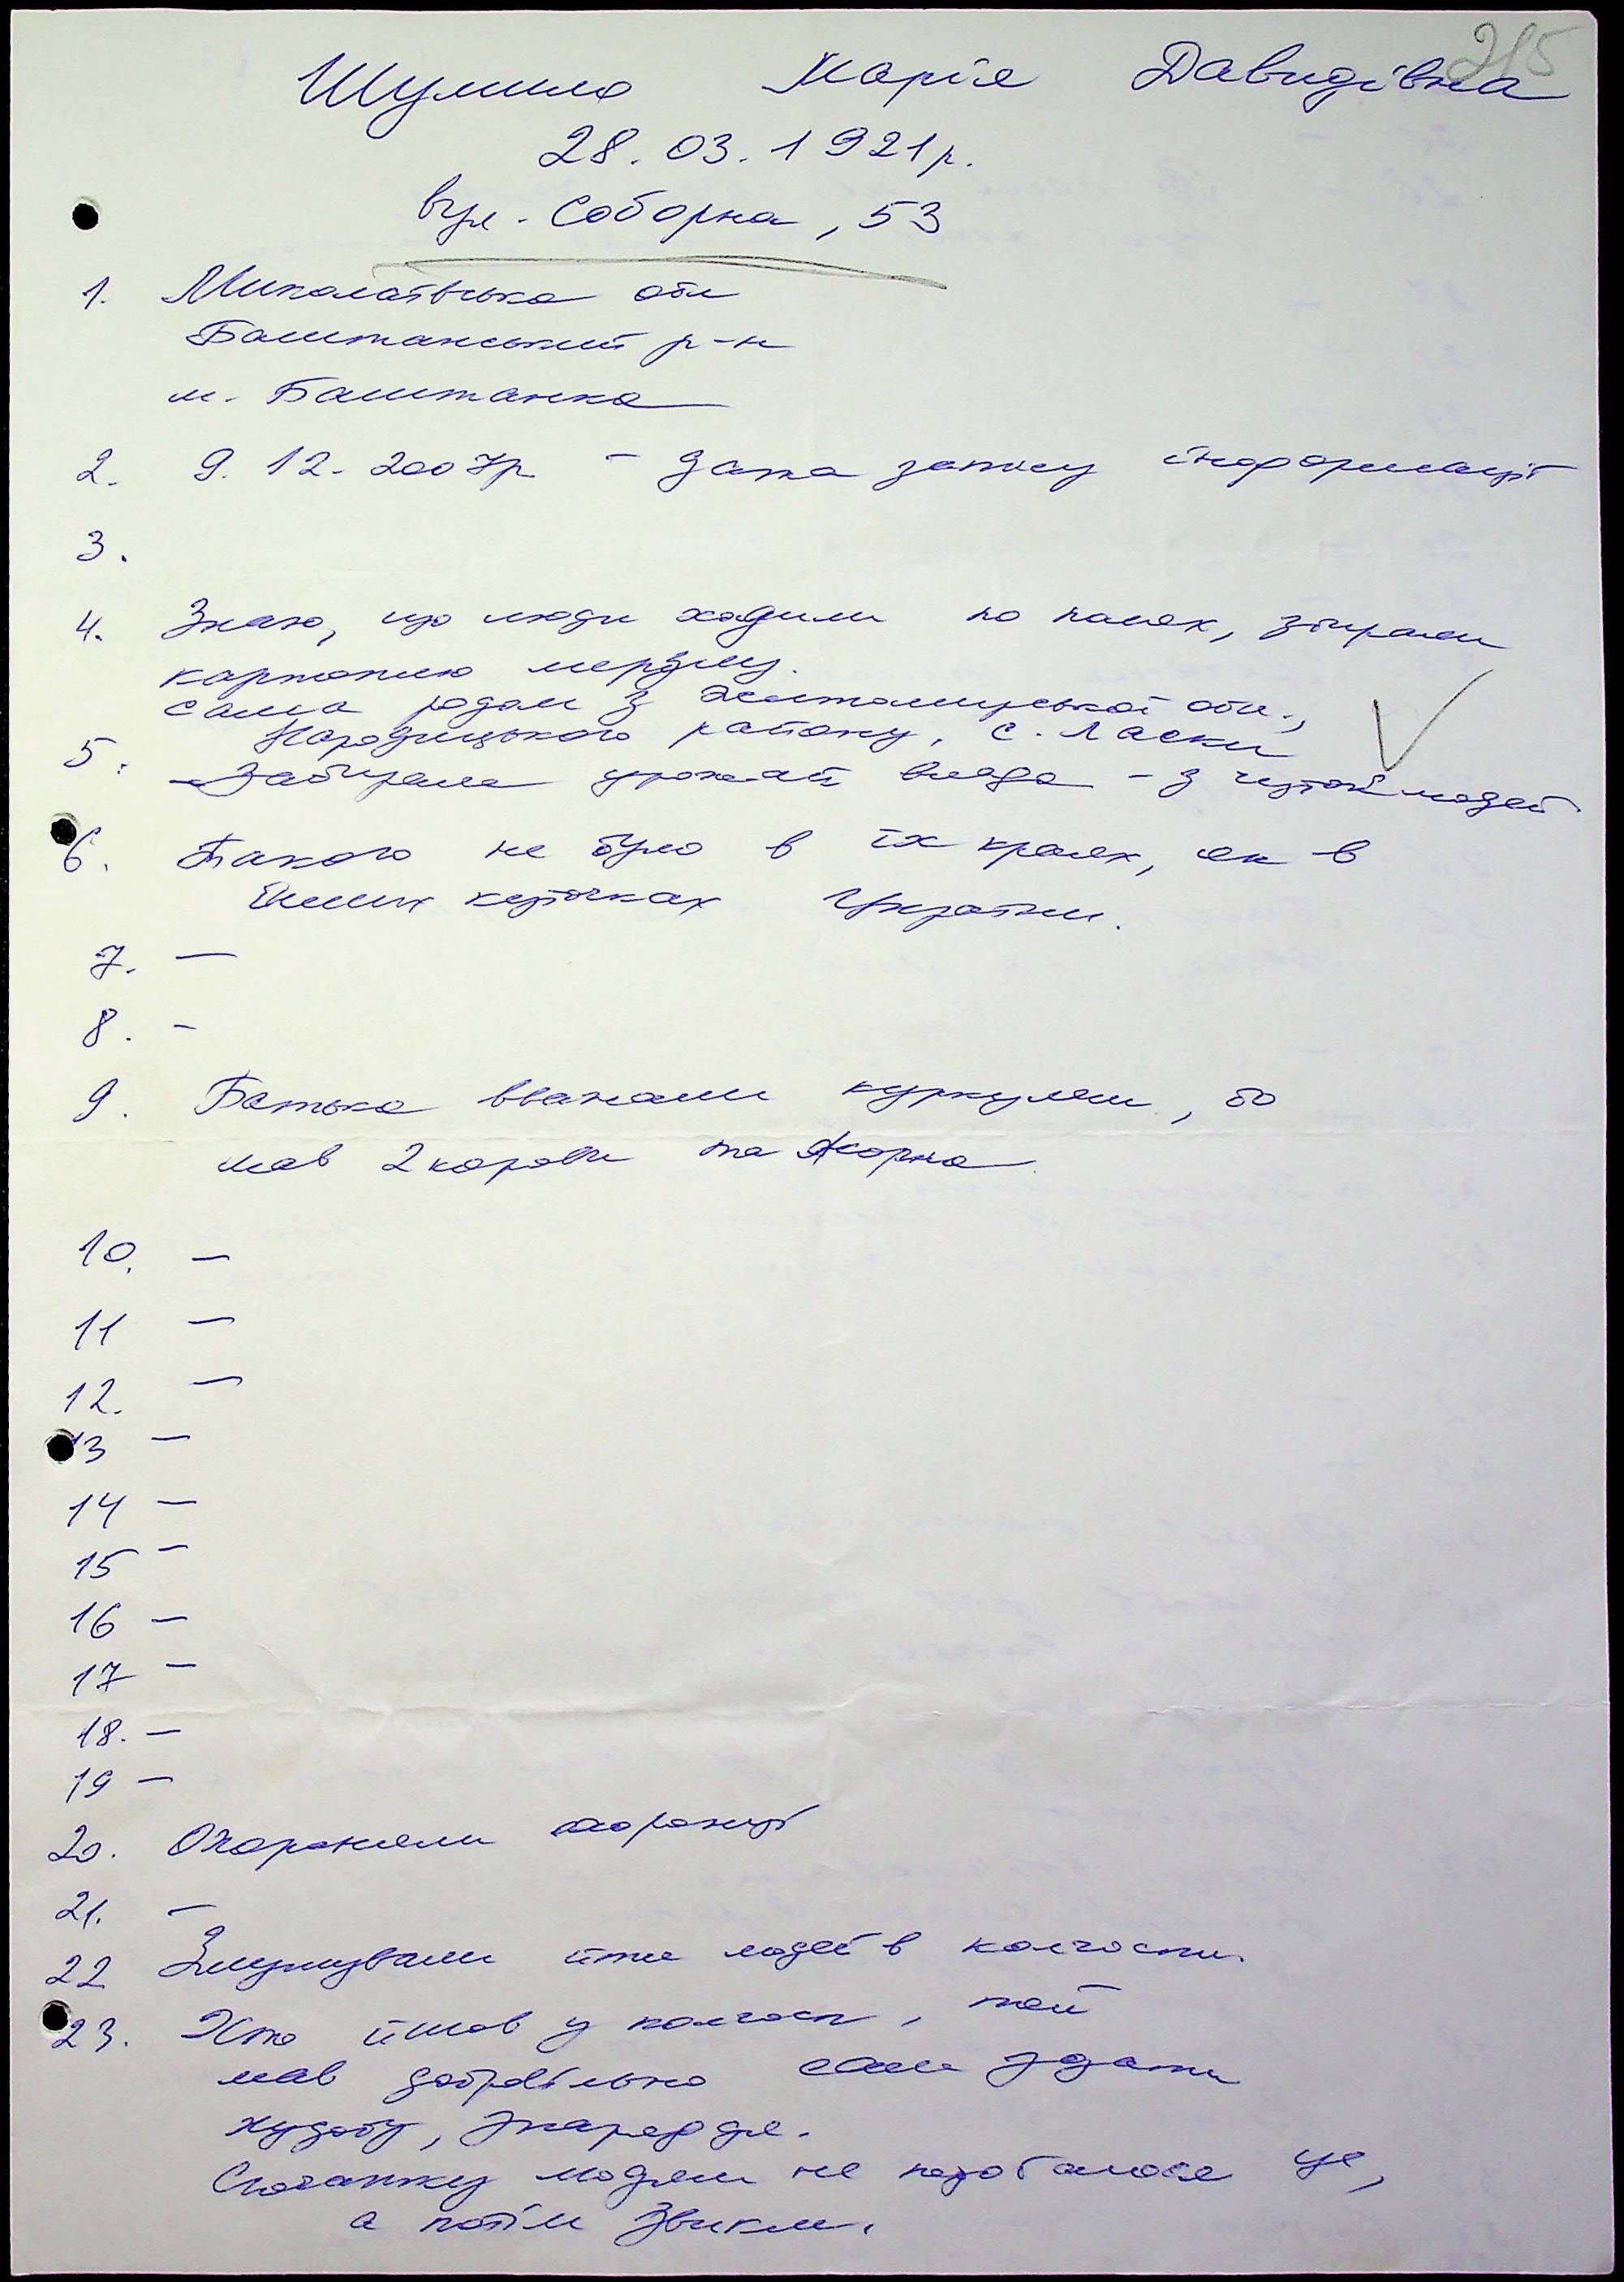 215
Шумило Марія Давидівна
28.03.1921р.
вул. Соборна, 53
1. Миколаївська обл
Баштанський р-н
м. Баштанка
2. 9.12.2007р - дата запису інформації
3.
4. Знаю, що люди ходили по полях, збирали
картоплю мерзлу.
сама родом з Житомирської обл.,
Народицького району, с. Ласки
5. Забирала урожай влада - з чуток людей
6. Такого не було в їх краях, як в
інших куточках України.
7. —
8. -
9. Батька вважали куркулем, бо
мав 2 корови та жорна
10. —
11 —
12. —
13 —
14 —
15 —
16 —
17 —
18. —
19 —
20. Охороняли охоронці
21. —
22 Змушували йти людей в колгоспи.
23. Хто йшов у колгосп, той
мав добровільно сам здати
худобу, знаряддя.
Спочатку людям не подобалося це,
а потім звикли.